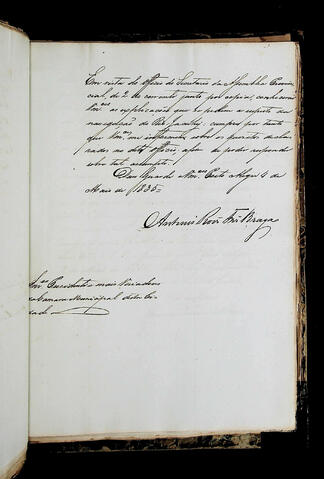 Em vista do officio do Secretario da Assembléa Provin
cial de 2 do corrente junto por copia, conhecerão
Vm.ces as explicações que se pedem a respeito da
navegação do Rio Jacuhy; cumpre por tanto
que Vm.ces me informem sobre os quesitos decla
rados no dito officio afim de poder responder
sobre tal assumpto.
Deos Guarde a Vm.ces Porto Alegre 4 de
Maio de 1835
Antonio Roiz Frz Braga
Snr.es Presidente e mais Vereadores
da Camara Municipal desta Ci
dade